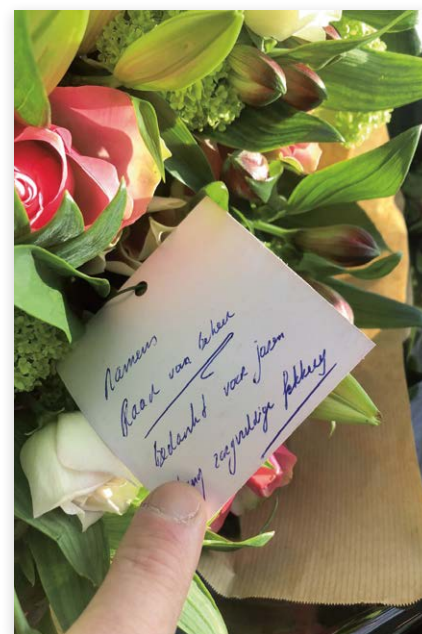 Namens
Raad van Beheer
Bedankt voor jaren
zorgvuldige fokkerij